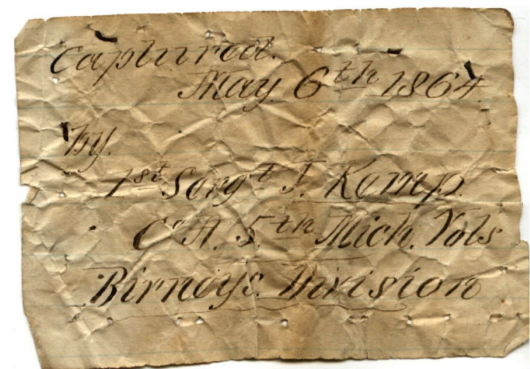 Captured.
May 6th 1864
by.
1st Sergt J. Kemp
Co A. 5th Mich. Vols
Birneys. Division